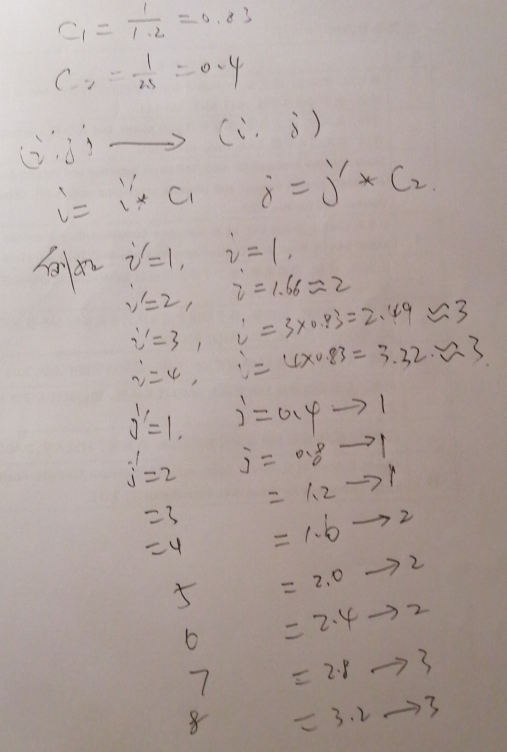 C₁ = 1/1.2 = 0.83
C₂ = 1/2.5 = 0.4
(i', j') → (i, j)
i = i' * C₁ j = j' * C₂.
例如 i'=1, i=1.
i'=2, i=1.66≈2
i'=3, i=3×0.83=2.49≈3
i'=4, i=4×0.83=3.32.≈3.
j'=1. j=0.4→1
j'=2 j=0.8→1
=3 =1.2→1
=4 =1.6→2
5 =2.0→2
6 =2.4→2
7 =2.8→3
8 =3.2→3